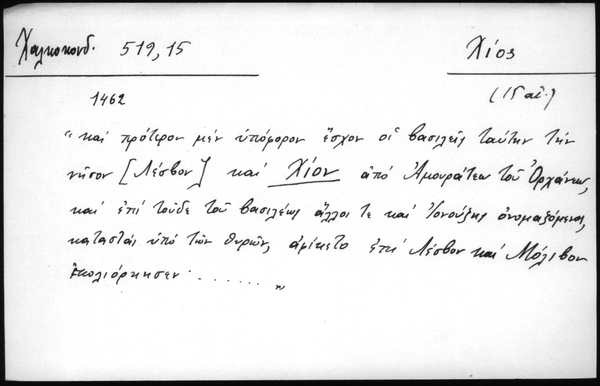 Χαλκοκονδ. 519,15
Χίος
1462
(15 αἰ.)
"καὶ πρότερον μὲν ὑπόφορον ἔσχον οἱ βασιλεῖς ταύτην τὴν
νῆσον [Λέσβον] καὶ Χίον ἀπὸ Ἀμουράτεω τοῦ Ὀρχάνεω,
καὶ ἐπὶ τοῦδε τοῦ βασιλέως ἄλλοι τε καὶ Ἰονούζης ὀνομαζόμενος,
καταστὰς ὑπὸ τῶν θυρῶν, ἀφίκετο ἐπὶ Λέσβον καὶ Μόλιβον
ἐπολιόρκησεν ......."